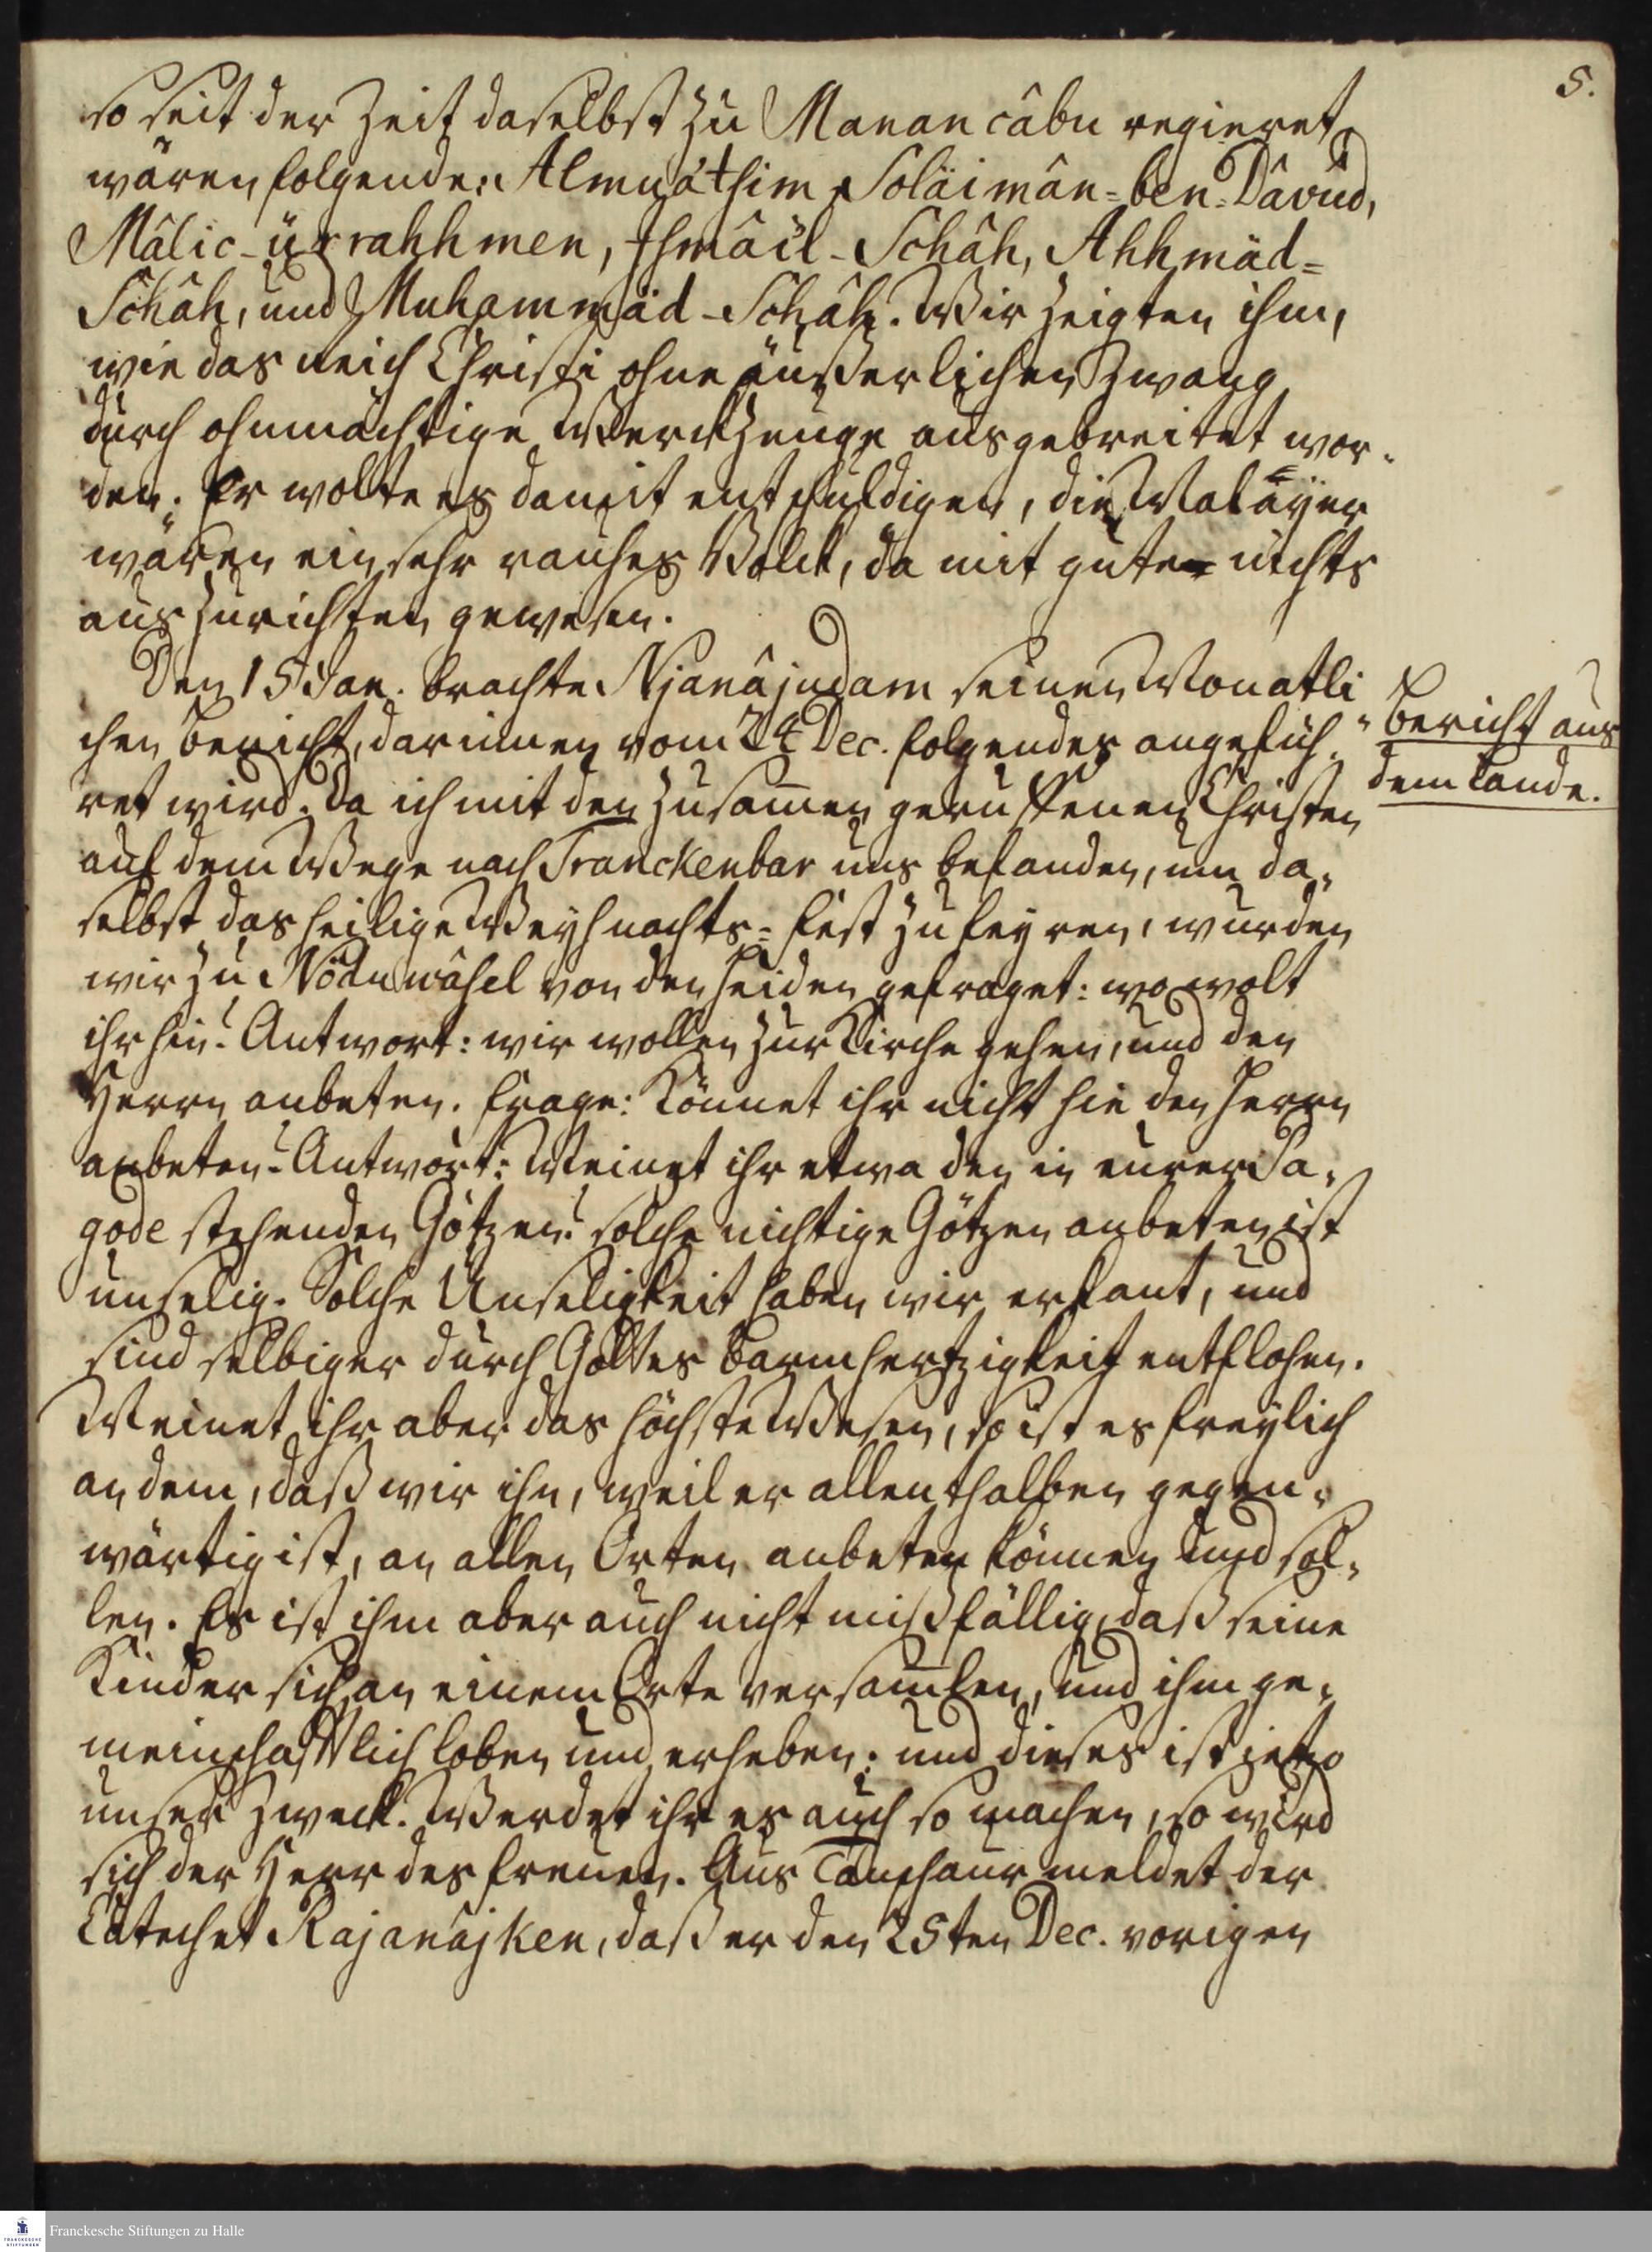 5.
so seit der Zeit daselbst zu Manancâbu regieret
wären folgende: Almuáthim Soläimân=ben=Dâvud,
Mâlic-ürrahhmen, Ismâïl-Schâh, Ahhmäd=
Schâh, und Muhammäd-Schâh. Wir zeigten ihm,
wie das reich Christi ohne äußerlichen Zwang
durch ohnmächtige Werckzeuge ausgebreitet wor-
den. Er wolte es damit entschuldigen, die Maläyer
wären ein sehr rauhes Volck, da mit gute nichts
auszurichten gewesen.
Den 15 Jan. brachte Njanâjudam seinen Monatli
chen bericht, darinnen vom 24 Dec. folgendes angefüh-
ret wird. Da ich mit den zusam̅en geruffenen Christen
auf dem Wege nach Tranckenbar uns befanden, um da-
selbst das heilige Weyhnachts=Fest zu feyren, wurden
wir zu Nödu wâsel von den Heiden gefraget: wo wolt
ihr hin? Antwort: wir wollen zur Kirche gehen, und den
Herrn anbeten. Frage: Könnet ihr nicht hie den Herrn
anbeten? Antwort: Meinet ihr etwa den in eurer Pa-
gode stehenden Götzen? solche nichtige Götzen anbeten ist
unselig. Solche Unseligkeit haben wir erkant, und
sind selbiger durch Gottes Barmhertzigkeit entflohen.
Meinet ihr aber das höchste Wesen, so ist es freylich
an dem, daß wir ihn, weil er allenthalben gegen-
wärtig ist, an allen Orten anbeten können und sol-
len. Es ist ihm aber auch nicht mißfällig, daß seine
Kinder sich an einem Orte versam̅len, und ihm ge-
meinschafftlich loben und erheben: und dieses ist jetzo
unser Zweck. Werdet ihr es auch so machen, so wird
sich der Herr des freuen. Aus Tanschaur meldet der
Catechet Rajanâjken, daß er den 25ten Dec. vorigen
Bericht aus
dem Lande.
Franckesche Stiftungen zu Halle
FRANCKESCHE
STIFTUNGEN